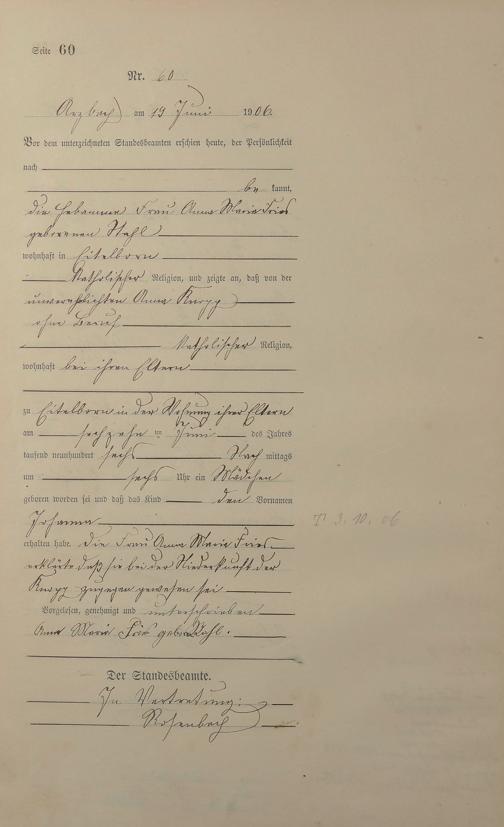 Seite 60
Nr. 60
Arzbach am 19 Juni 1906.
Vor dem unterzeichneten Standesbeamten erschien heute, der Persönlichkeit
nach
be kannt,
die Hebamme Frau Anna Maria Fries
geborenen Stahl
wohnhaft in Eitelborn
Katholischer Religion, und zeigte an, daß von der
unverehelichten Anna Knopp
ohne Beruf
Katholischer Religion,
wohnhaft bei ihren Eltern
zu Eitelborn in der Wohnung ihrer Eltern
am sechzehn ten Juni des Jahres
tausend neunhundert sechs Nach mittags
um sechs Uhr ein Mädchen
geboren worden sei und daß das Kind den Vornamen
Johanna
erhalten habe. Die Frau Anna Maria Fries
erklärte daß sie bei der Niederkunft der
Knopp zugegen gewesen sei
Vorgelesen, genehmigt und unterschrieben
Anna Maria Fries geb.
Der Standesbeamte.
In Vertretung:
Rosenbach
T 3. 10. 06